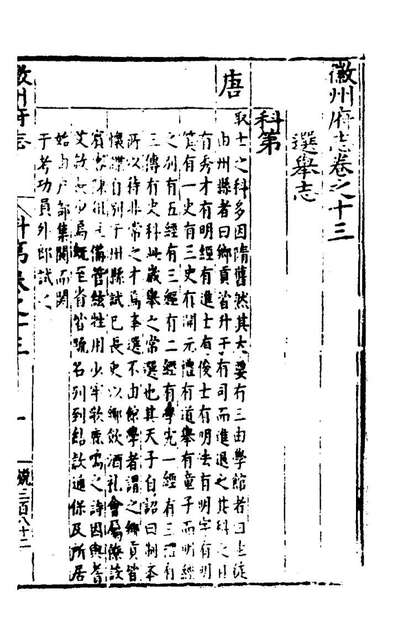 徽州府志卷之十三
選舉志
科第
唐
取士之科多因隋舊然其大要有三由學館者曰生徒
由州縣者曰鄉貢皆升于有司而進退之其科之目
有秀才有明經有進士有俊士有明法有明字有明
筭有一史有三史有開元禮有道舉有童子而明經
之別有五經有三經有二經有學究一經有三禮有
三傳有史科此歲舉之常選也其天子自詔曰制本
所以待非常之才焉事選不由館學者謂之鄉貢皆
懷牒自列于州縣試已長吏以鄉飲酒禮會屬僚設
賓主陳俎豆備管絃牲用少牢歌鹿鳴之詩因與耆
艾敘少長焉既至省皆疏名列到結款通保及所居
始由戶部集閱而關
于考功員外郎試之
徽州府志
科第卷之十三
一
三百八十二